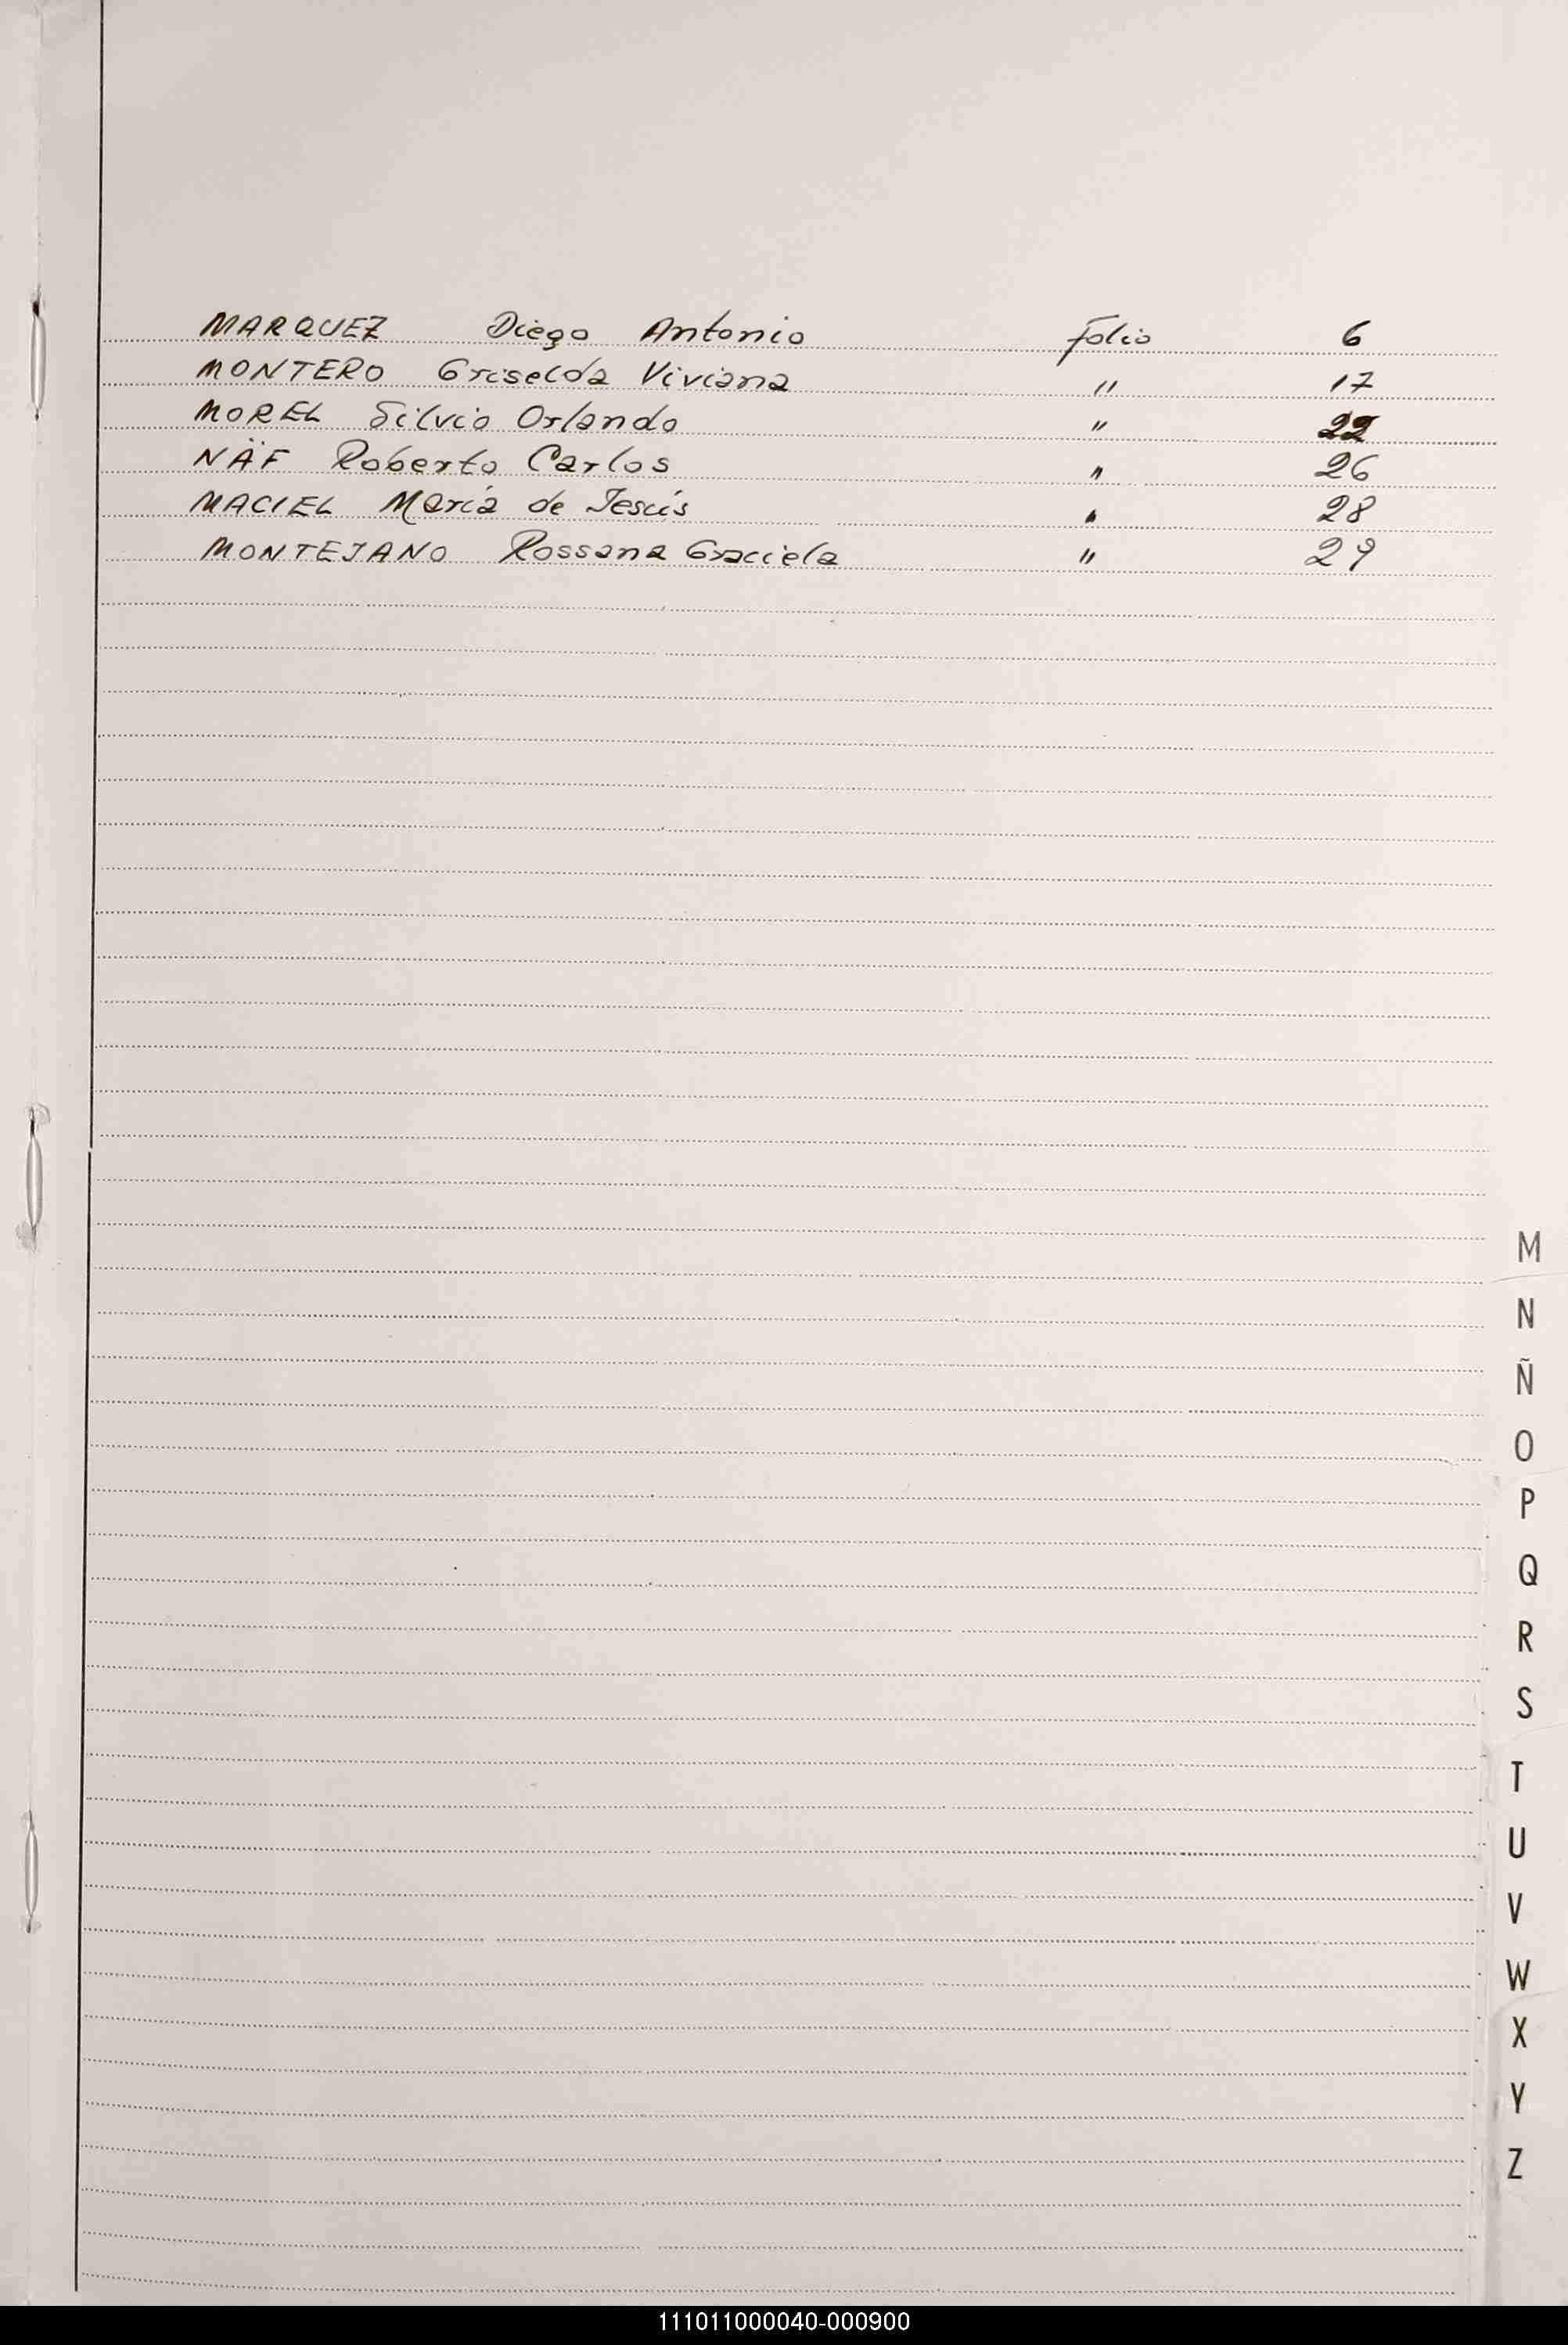 MARQUEZ Diego Antonio Folio 6
MONTERO Griselda Viviana " 17
MOREL Silvio Orlando " 22
NÄF Roberto Carlos " 26
MACIEL María de Jesús " 28
MONTEJANO Rossana Graciela " 29
M
N
Ñ
O
P
Q
R
S
T
U
V
W
X
Y
Z
111011000040-000900